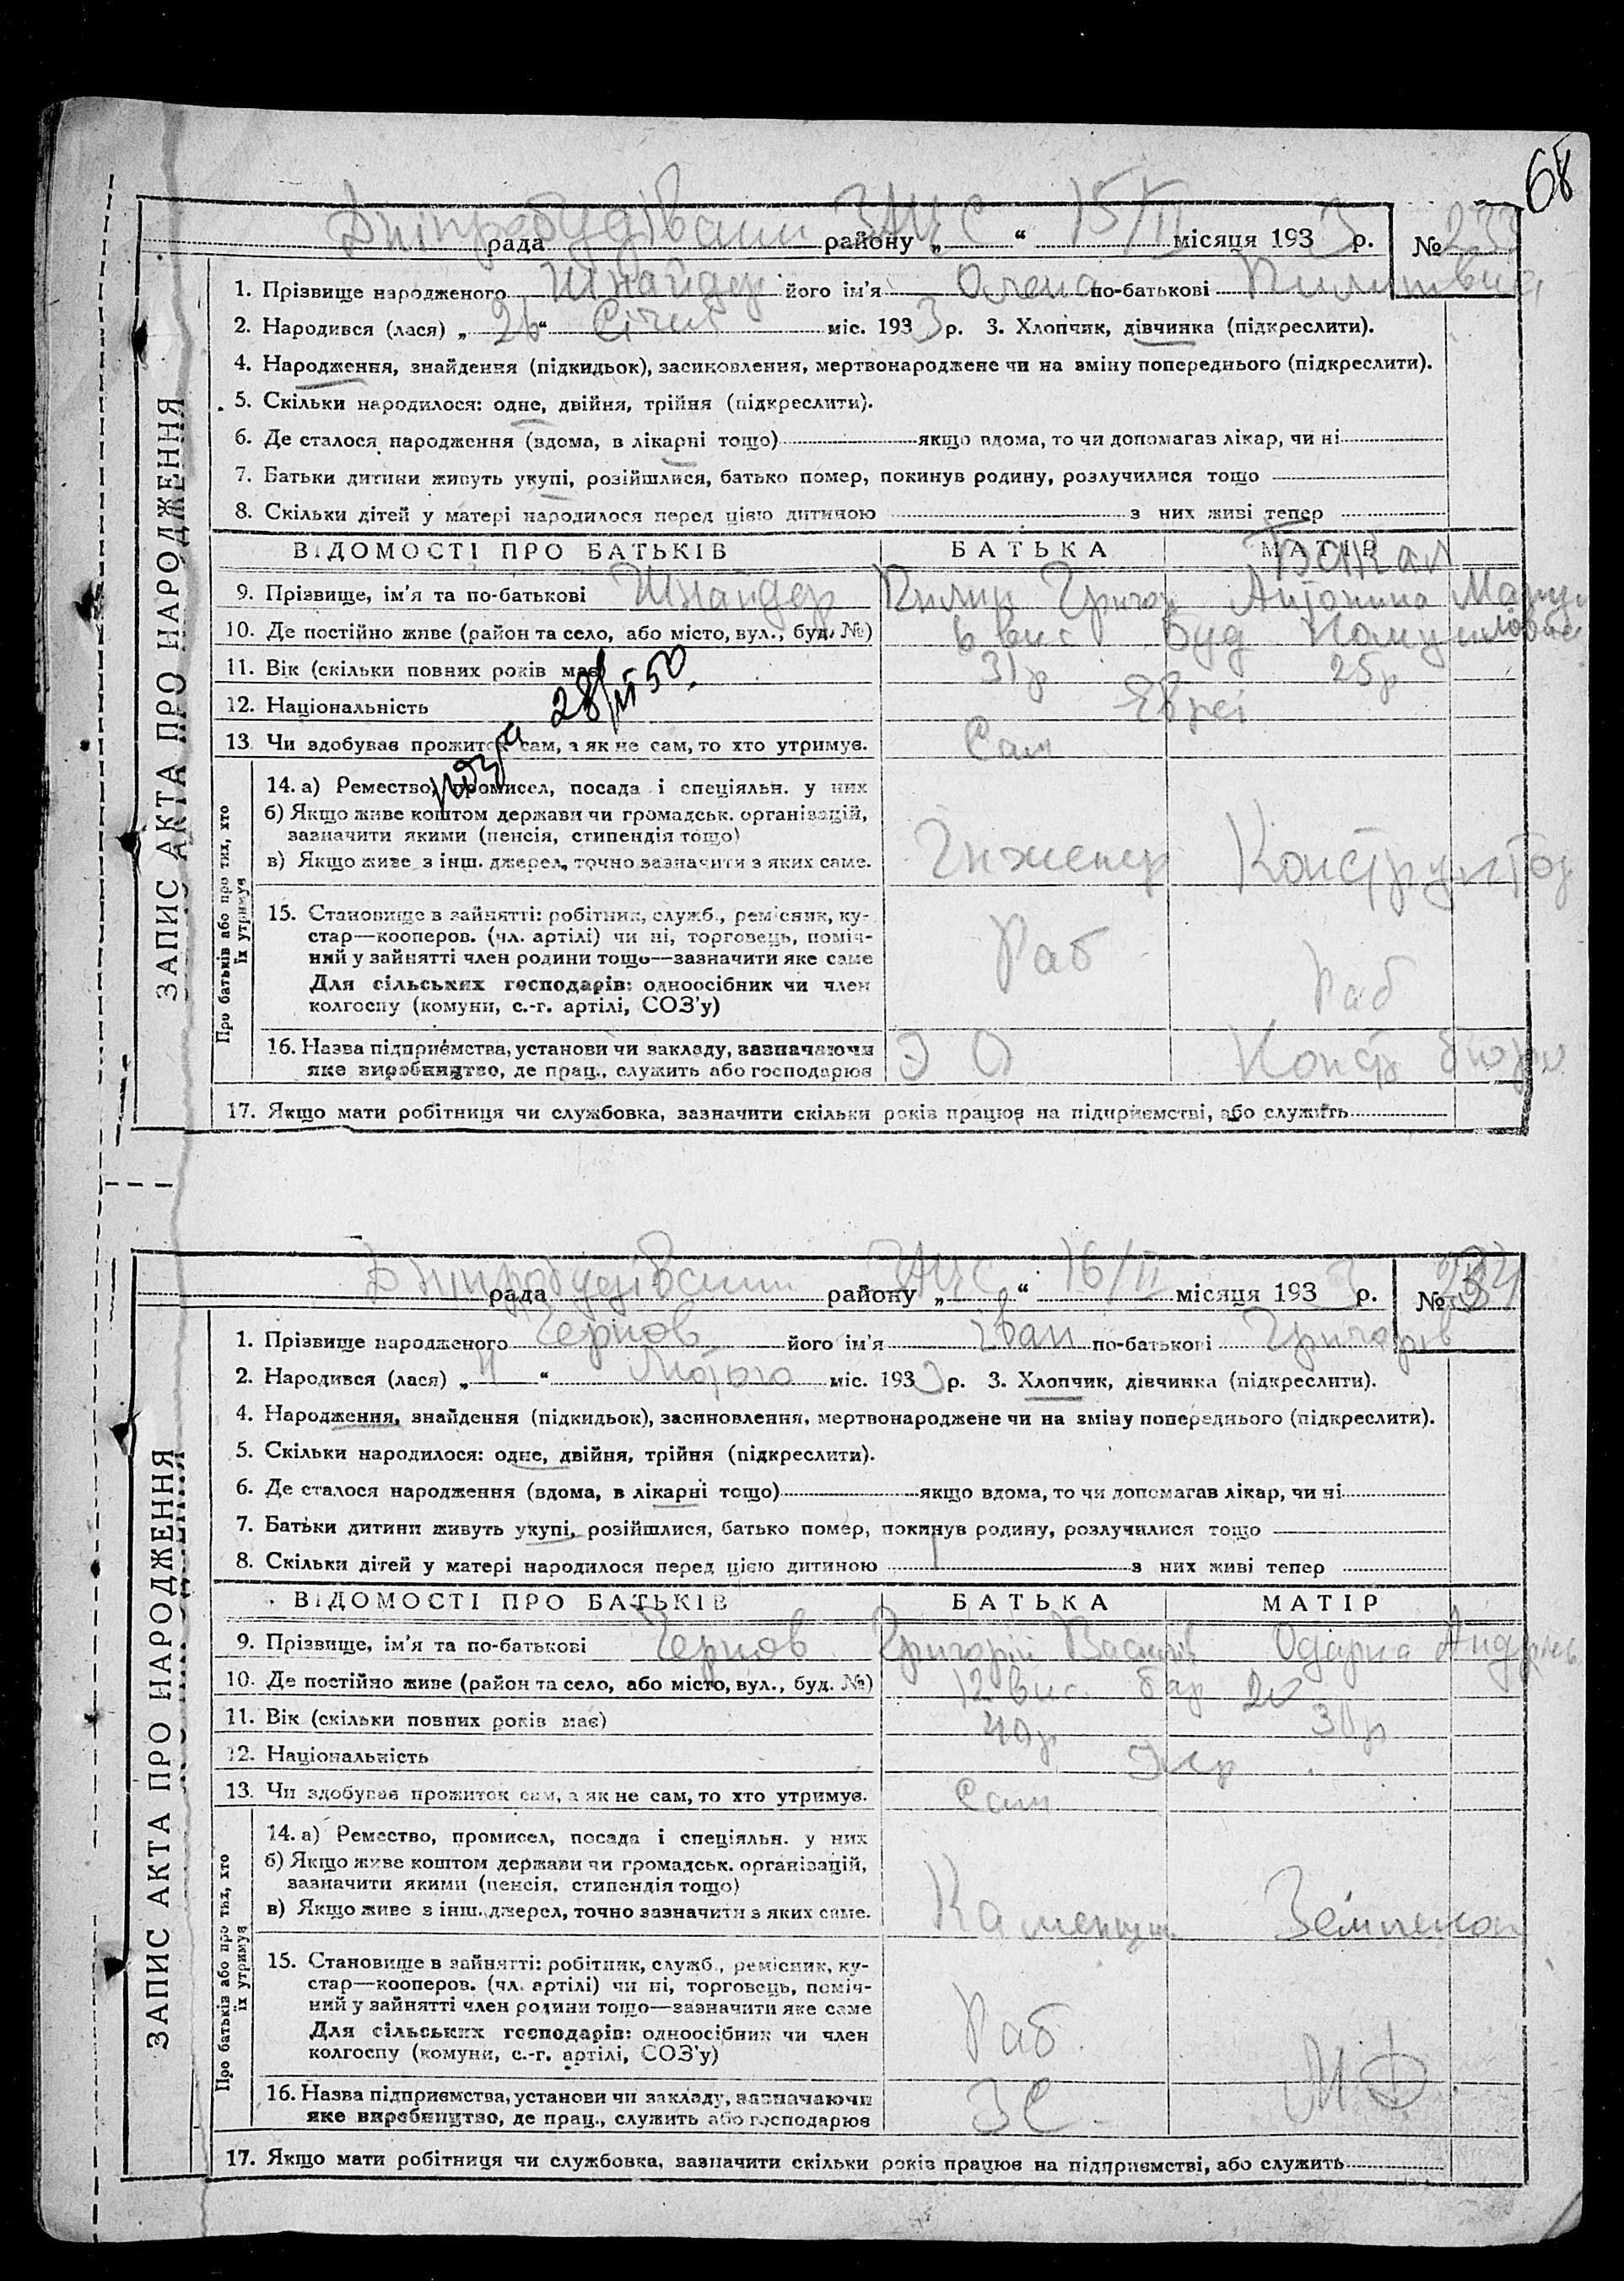 68
Дніпробудівський ЗАЦС 15/II
рада району „ “ місяця 193 3 р. № 233
1. Прізвище народженого Шнайдер його ім'я Олена по-батькові Пилипівна
2. Народився (лася) „ 26 “ Січня міс. 193 3 р. 3. Хлопчик, дівчинка (підкреслити).
4. Народження, знайдення (підкидьок), засиновлення, мертвонароджене чи на зміну попереднього (підкреслити).
5. Скільки народилося: одне, двійня, трійня (підкреслити).
6. Де сталося народження (вдома, в лікарні тощо) якщо вдома, то чи допомагав лікар, чи ні
7. Батьки дитини живуть укупі, розійшлися, батько помер, покинув родину, розлучилися тощо
8. Скільки дітей у матері народилося перед цією дитиною з них живі тепер
ВІДОМОСТІ ПРО БАТЬКІВ БАТЬКА МАТІР
9. Прізвище, ім'я та по-батькові Шнайдер Пилип Григор Антонина
10. Де постійно живе (район та село, або місто, вул., буд. №) 6 вис буд
11. Вік (скільки повних років має) 31 р 25 р
28/II 50
12. Національність Євреї
13. Чи здобував прожиток сам, а як не сам, то хто утримує. Сам
14. а) Ремество, промисел, посада і спеціяльн. у них
б) Якщо живе коштом держави чи громадськ. організацій,
зазначити якими (пенсія, стипендія тощо)
в) Якщо живе з інш. джерел, точно зазначити з яких саме. Інженер Конструктор
15. Становище в зайнятті: робітник, служб., ремісник, ку-
стар—кооперов. (чл. артілі) чи ні, торговець, поміч-
ний у зайнятті член родини тощо—зазначити яке саме Раб
Для сільських господарів: одноосібник чи член
колгоспу (комуни, с.-г. артілі, СОЗ'у) Раб
16. Назва підприємства, установи чи закладу, зазначаючи
яке виробництво, де прац., служить або господарює Констр бюро
17. Якщо мати робітниця чи службовка, зазначити скільки років працює на підприємстві, або служить
ЗАПИС АКТА ПРО НАРОДЖЕННЯ
Про батьків або про тих, хто
їх утримує
Дніпробудівський ЗАЦС 16/II
рада району „ “ місяця 193 3 р. № 234
1. Прізвище народженого Чернов його ім'я Іван по-батькові Григорів
2. Народився (лася) „ “ Лютого міс. 193 3 р. 3. Хлопчик, дівчинка (підкреслити).
4. Народження, знайдення (підкидьок), засиновлення, мертвонароджене чи на зміну попереднього (підкреслити).
5. Скільки народилося: одне, двійня, трійня (підкреслити).
6. Де сталося народження (вдома, в лікарні тощо) якщо вдома, то чи допомагав лікар, чи ні
7. Батьки дитини живуть укупі, розійшлися, батько помер, покинув родину, розлучилися тощо
8. Скільки дітей у матері народилося перед цією дитиною 1 з них живі тепер
ВІДОМОСТІ ПРО БАТЬКІВ БАТЬКА МАТІР
9. Прізвище, ім'я та по-батькові Чернов Григорій Василів Одарка Андріїв
10. Де постійно живе (район та село, або місто, вул., буд. №) 12 вис. бар 20
11. Вік (скільки повних років має) 40 р 30 р
12. Національність Укр
13. Чи здобував прожиток сам, а як не сам, то хто утримує. Сам
14. а) Ремество, промисел, посада і спеціяльн. у них
б) Якщо живе коштом держави чи громадськ. організацій,
зазначити якими (пенсія, стипендія тощо)
в) Якщо живе з інш. джерел, точно зазначити з яких саме. Каменщик Землекоп
15. Становище в зайнятті: робітник, служб., ремісник, ку-
стар—кооперов. (чл. артілі) чи ні, торговець, поміч-
ний у зайнятті член родини тощо—зазначити яке саме Раб
Для сільських господарів: одноосібник чи член
колгоспу (комуни, с.-г. артілі, СОЗ'у)
16. Назва підприємства, установи чи закладу, зазначаючи
яке виробництво, де прац., служить або господарює ЗС
17. Якщо мати робітниця чи службовка, зазначити скільки років працює на підприємстві, або служить
ЗАПИС АКТА ПРО НАРОДЖЕННЯ
Про батьків або про тих, хто
їх утримує